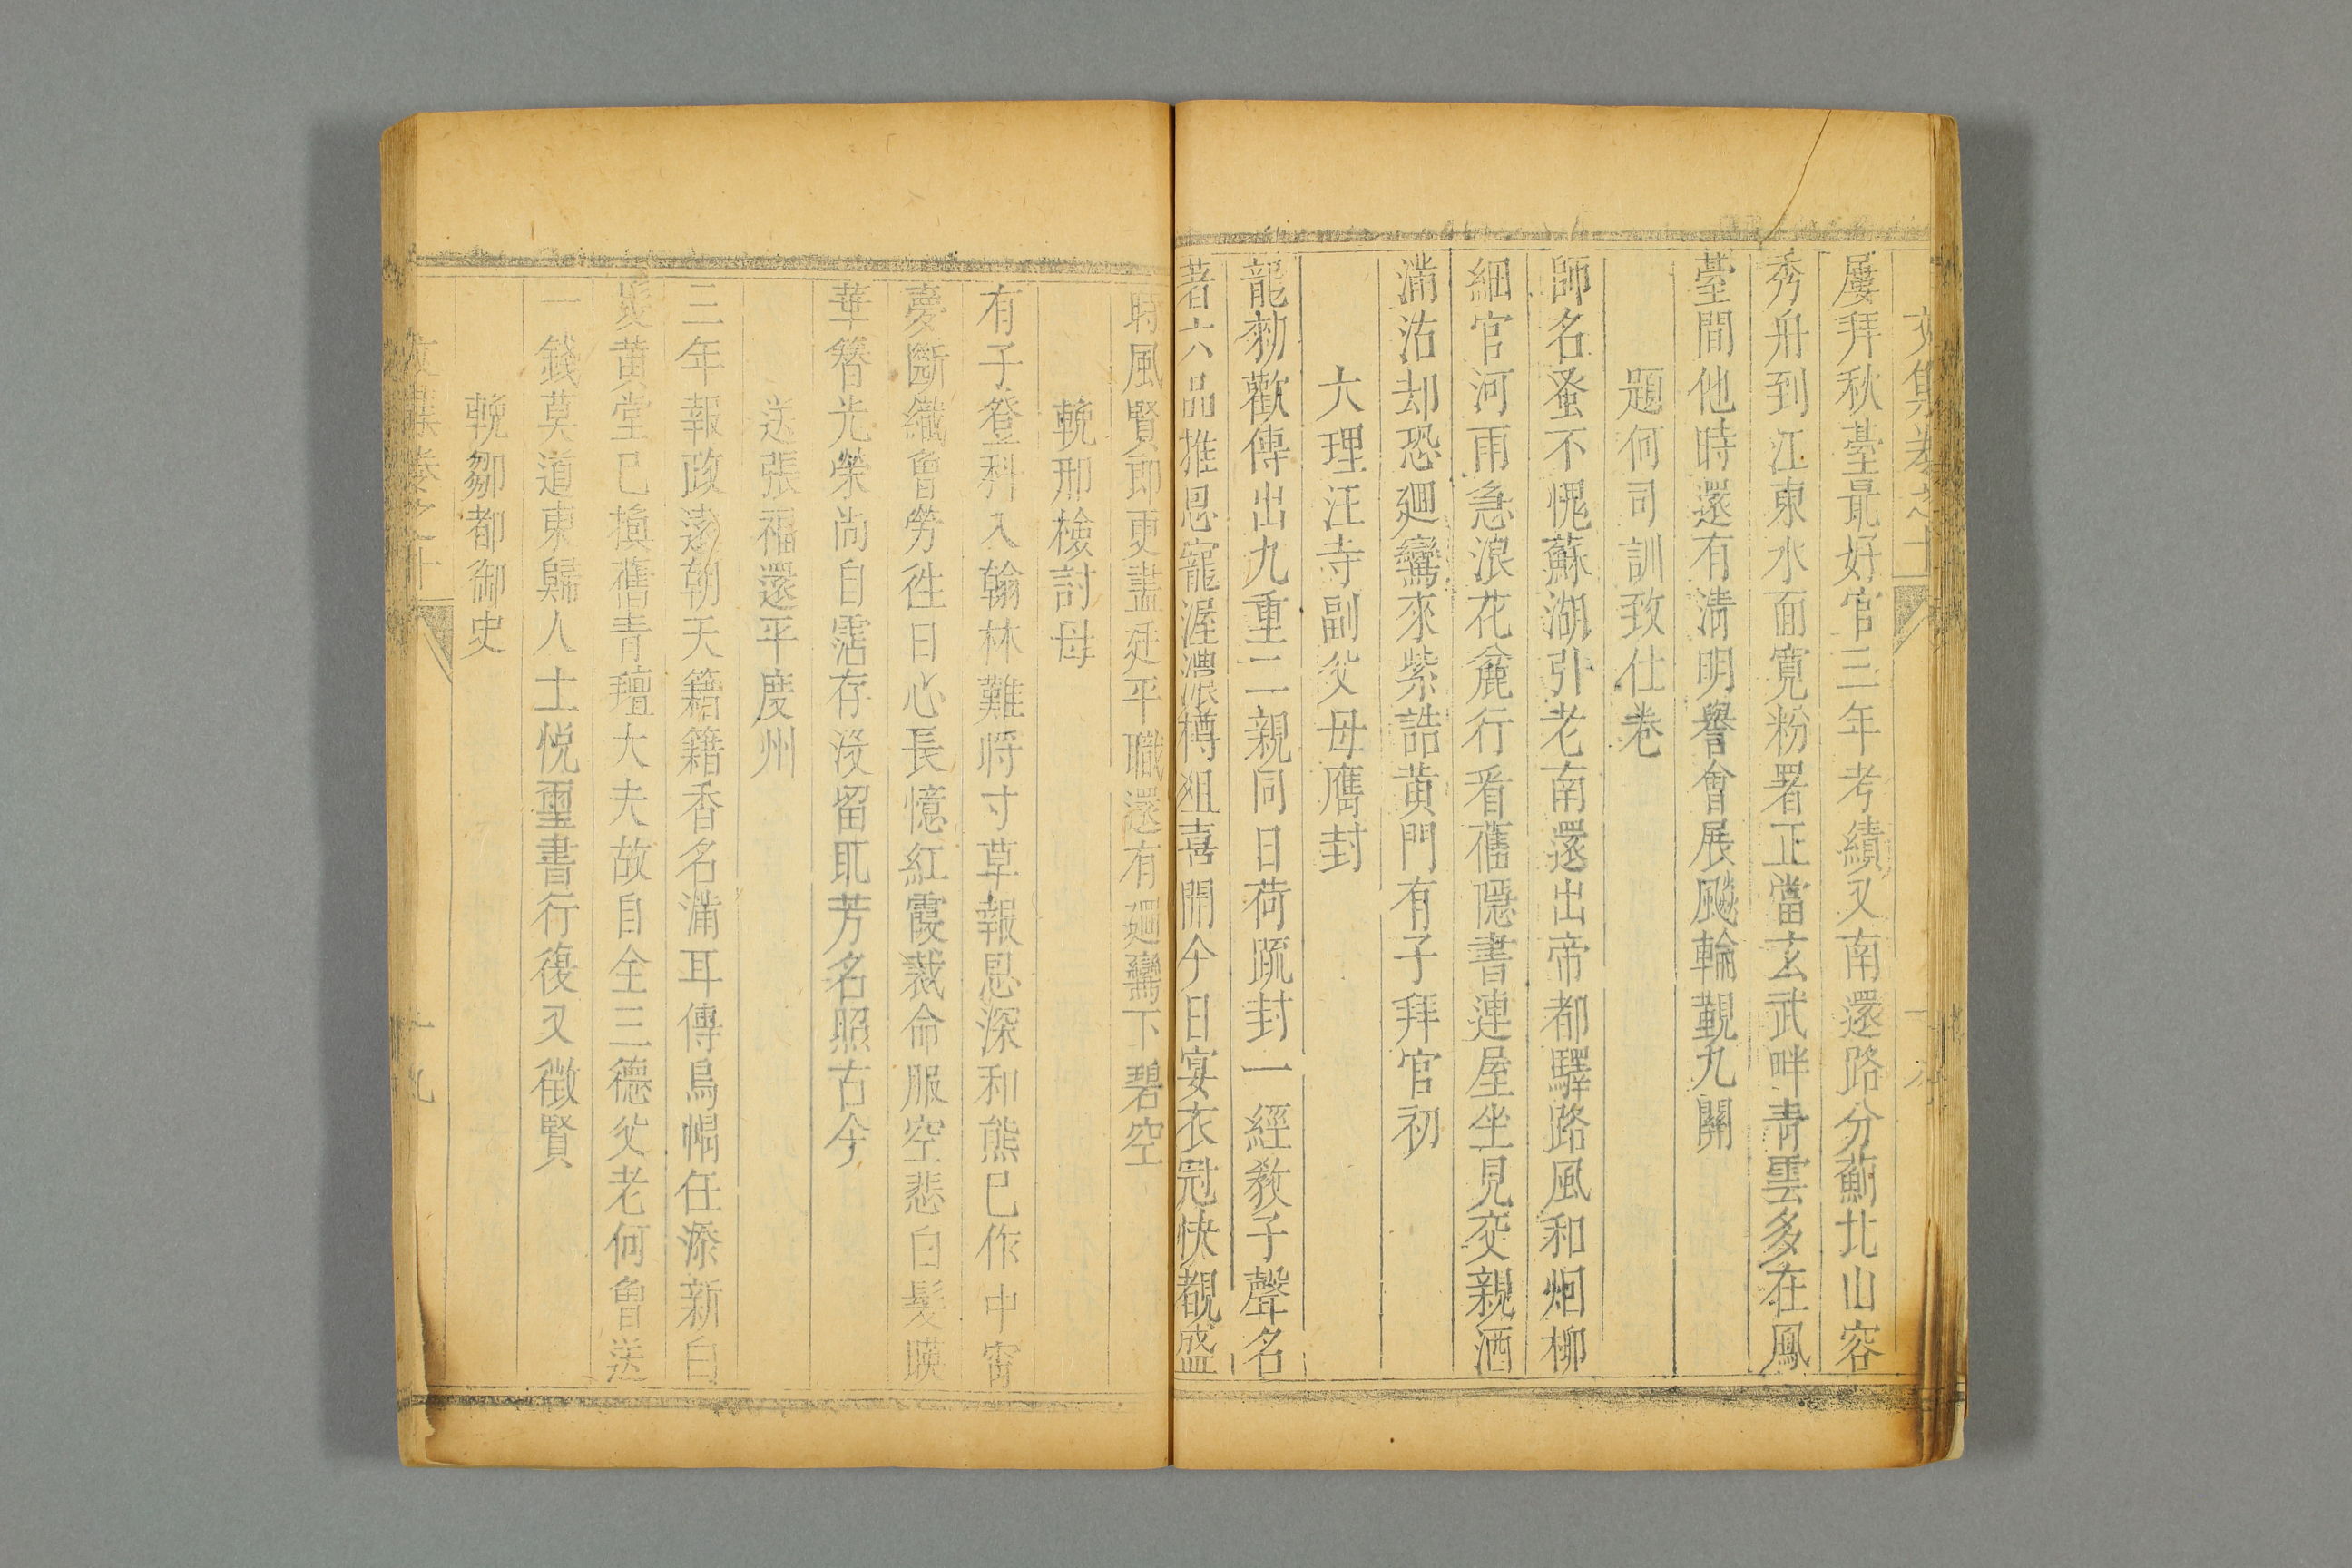 文集卷之十
屢拜秋臺最好官三年考績又南還路分薊北山容
秀舟到江東水面寬粉署正當玄武畔青雲多在鳳
臺間他時還有清明譽會展颷輪覲九關
題何司訓致仕卷
師名蚤不愧蘇湖引老南還出帝都驛路風和烟柳
細官河雨急浪花麄行看舊隱書連屋坐見交親酒
滿沽却恐廻鸞來紫誥黃門有子拜官初
大理汪寺副父母膺封
龍勑歡傳出九重二親同日荷疏封一經教子聲名
著六品推恩寵渥濃樽俎喜開今日宴衣冠快覩盛
時風賢郎更盡廷平職還有廻鸞下碧空
輓邢檢討母
有子登科入翰林難將寸草報恩深和熊已作中宵
夢斷織曾勞徃日心長憶紅霞裁命服空悲白髮暎
華簪光榮尚自霑存沒留取芳名照古今
送張福還平度州
三年報政遠朝天籍籍香名滿耳傳烏帽任添新白
髮黃堂已換舊青氊大夫故自全三德父老何曾送
一錢莫道東歸人士悅璽書行復又徵賢
輓鄒都御史
文集卷之十
十九